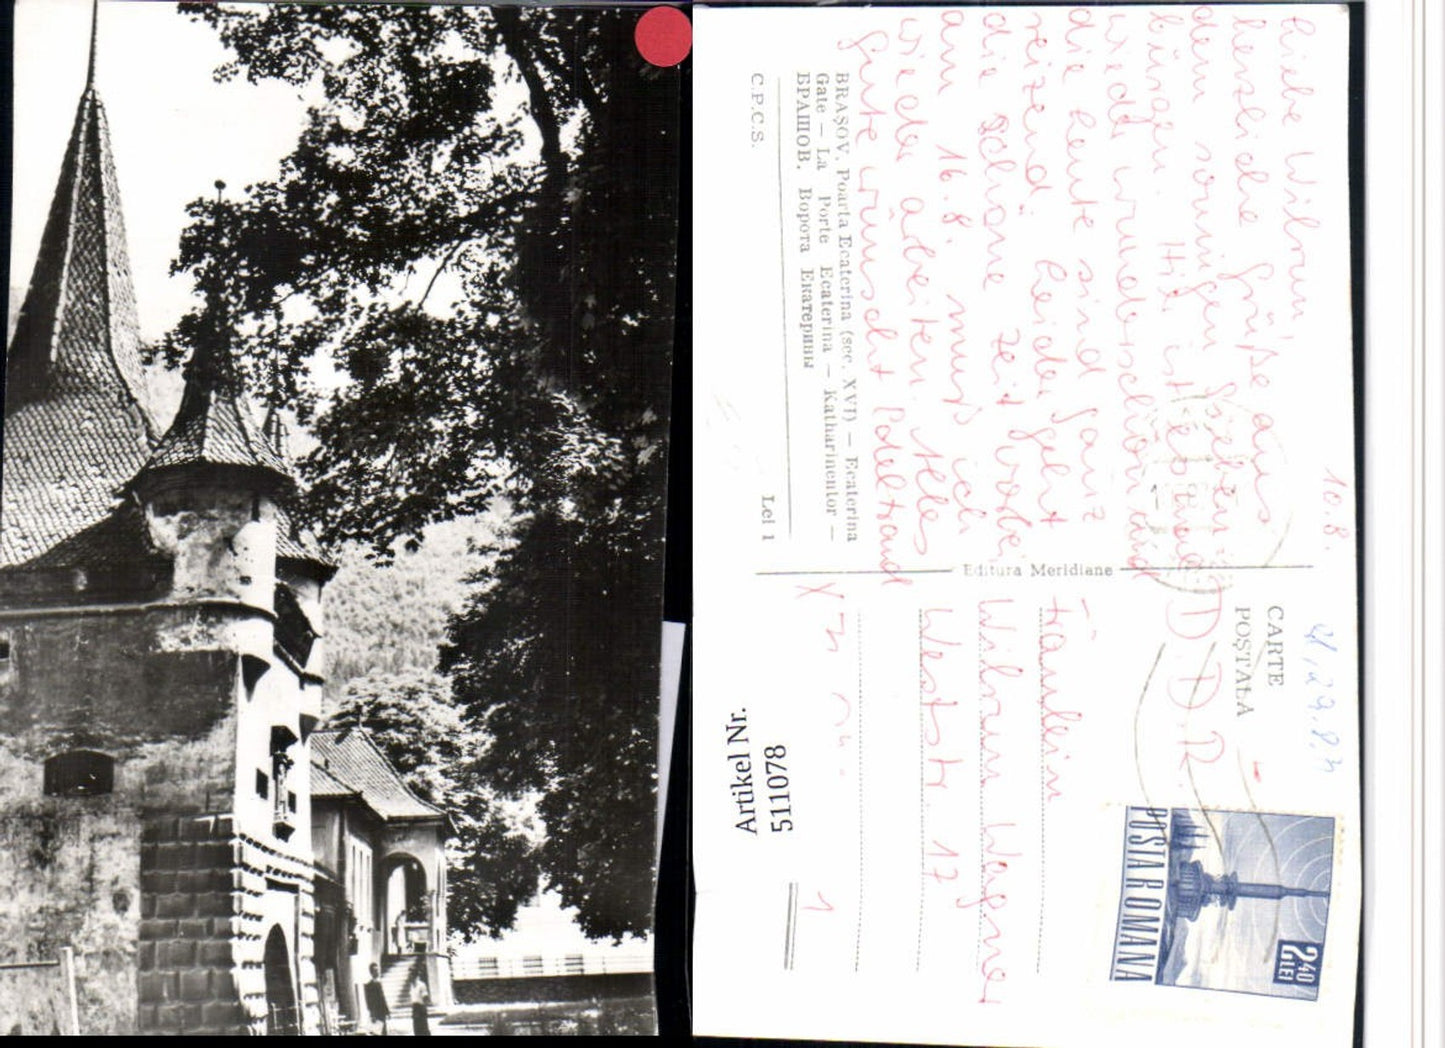 10.8.
Liebe Wiltrun,
herzliche Grüße aus
dem sonnigen
bürgen. Hier ist es
wieder wunderschön und
die Leute sind ganz
reizend. Leider geht
die schöne Zeit vorbei
am 16.8. muß ich
wieder arbeiten. Alles
Gute wünscht
BRAȘOV. Poarta Ecaterina (sec. XVI) — Ecaterina
Gate — La Porte Ecaterina — Katharinentor —
БРАШОВ. Ворота Екатерины
C.P.C.S.
Lei 1
Editura Meridiane
CARTE
POȘTALĂ
D.D.R.
Fräulein
Wagner
Weststr. 17
1
POSTA ROMANA
2,40
LEI
Artikel Nr.
511078